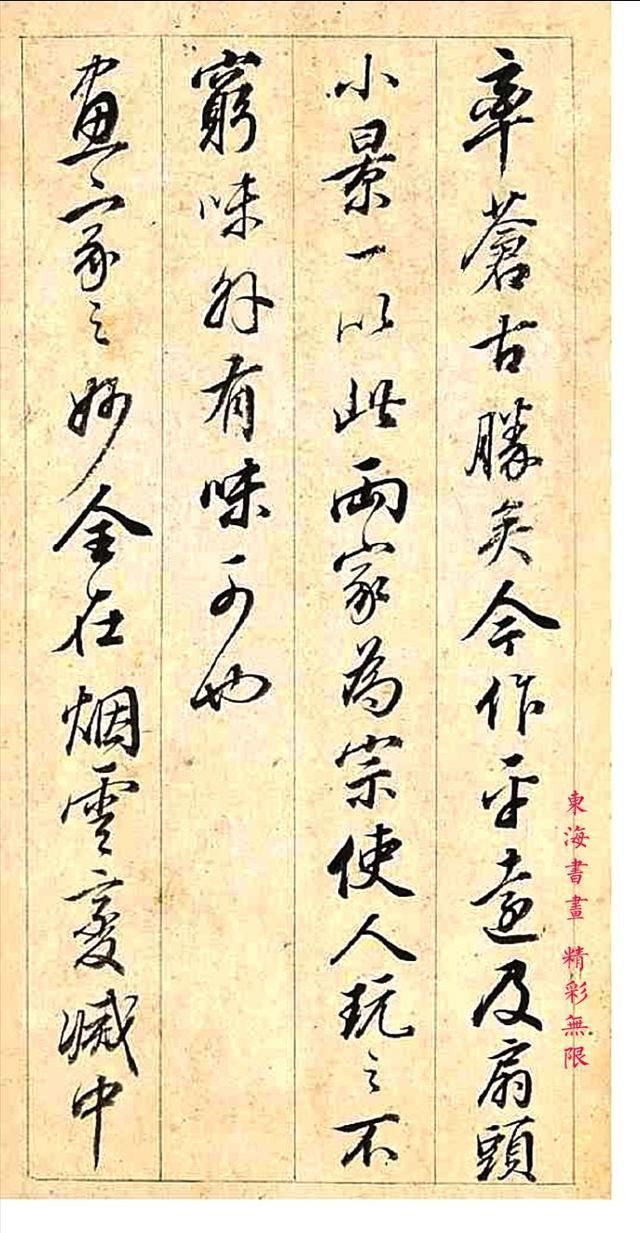 率蒼古勝矣今作平遠及扇頭
小景一以此兩家為宗使人玩之不
窮味外有味可也
畫家之妙全在烟雲變滅中
東海書畫 精彩無限